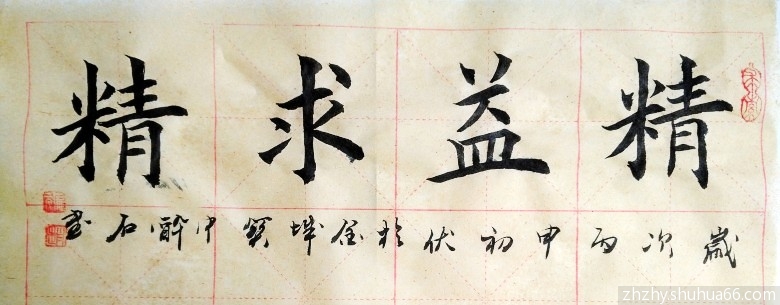 精益求精
歲次丙申初伏於金城寶中醉石書
zhzhyshuhua66.com